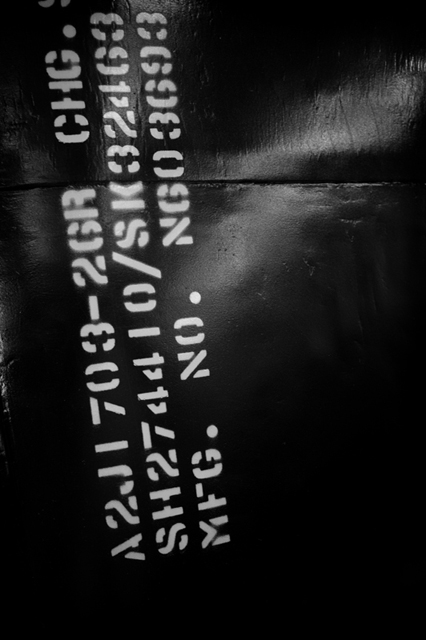 A2J1703-26R CHG.
SH274410/SK32463
MFG. NO. N603693